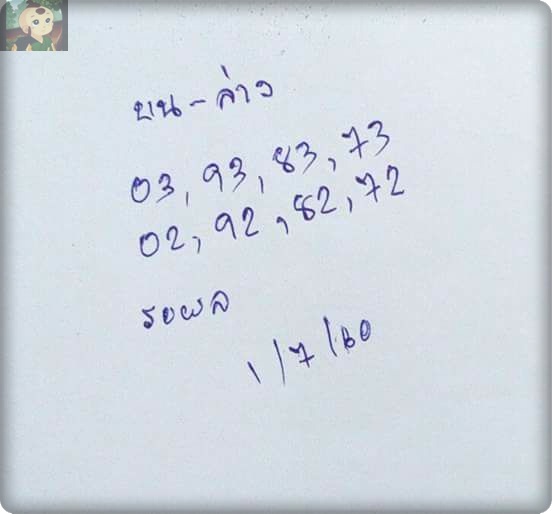 บน - ล่าง
03, 93, 83, 73
02, 92, 82, 72
รอผล
1/7/60